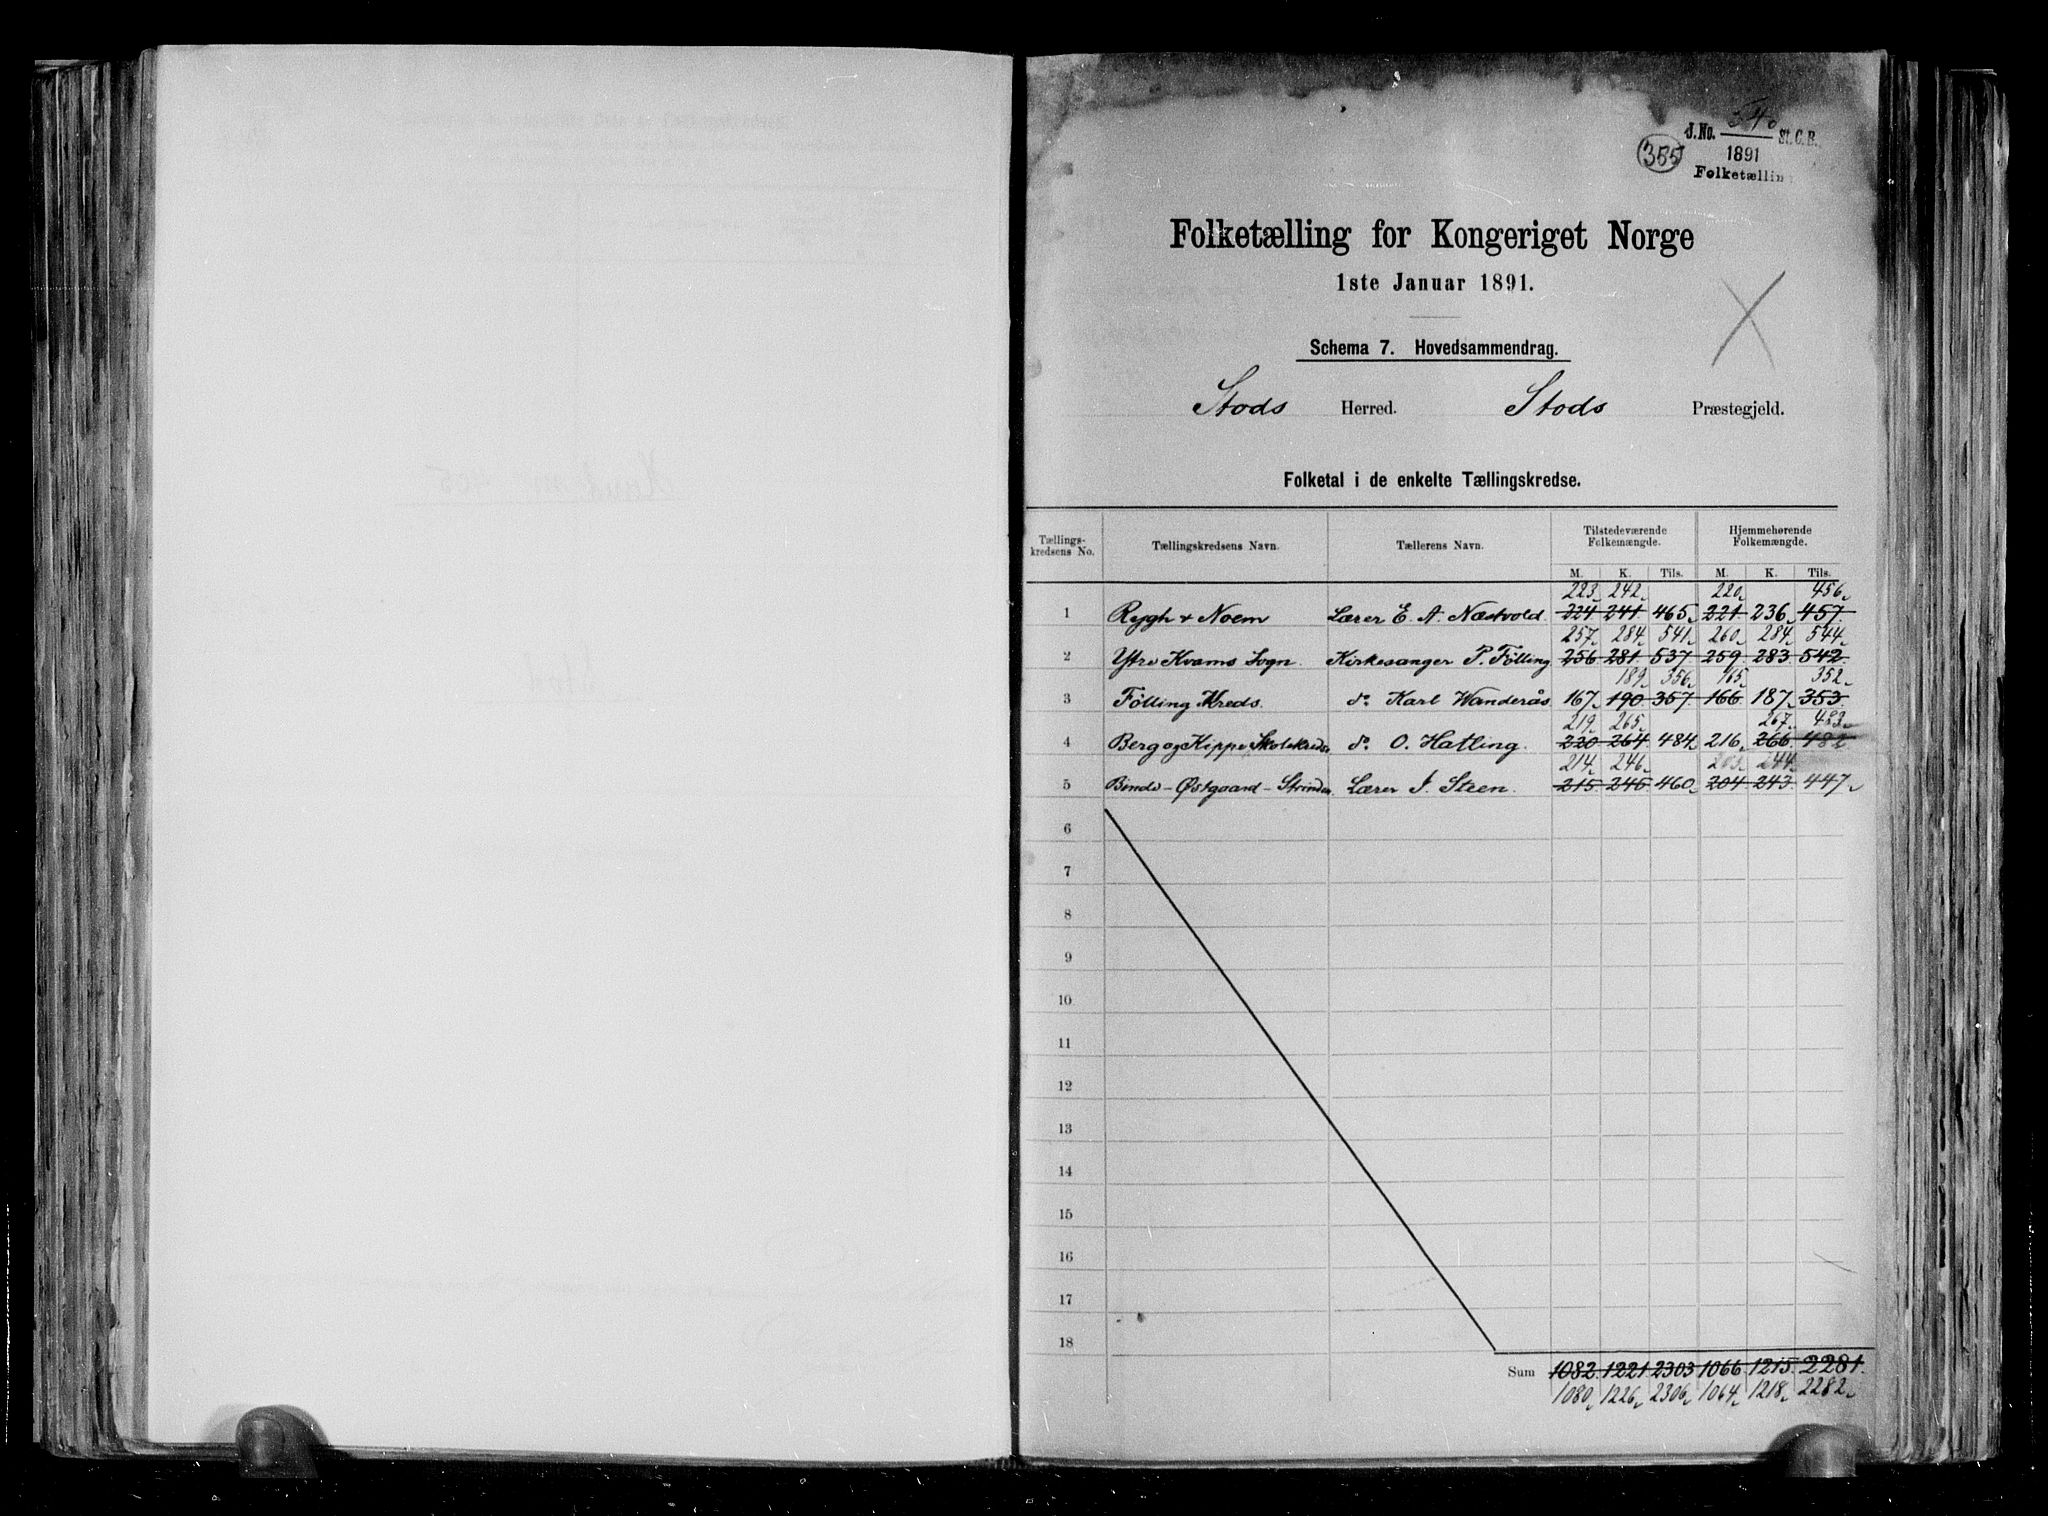 J. No. 340 St. C. B.
355
1891
Folketælling
Folketælling for Kongeriget Norge
1ste Januar 1891.
Schema 7. Hovedsammendrag.
Stods Herred. Stods Præstegjeld.
Folketal i de enkelte Tællingskredse.
Tællingskredsens No. Tællingskredsens Navn. Tællerens Navn. Tilstedeværende Folkemængde. Hjemmehørende Folkemængde.
M. K. Tils. M. K. Tils.
223 242 220 456
1 Rygh & Noem Lærer E. A. Næstvold 224 241 465 221 236 457
257 284 541 260 284 544
2 Ytre Kvams Sogn. Kirkesanger P. Følling 256 281 537 259 283 542
189 356 165 352
3 Følling Kreds. do Karl Wanderås 167 190 357 166 187 353
219 265 267 483
4 Berg og Kippe Skolekreds do O. Hatling. 220 264 484 216 266 482
214 246 203 244
5 Binde - Østgaard - Strinden Lærer J. Steen. 215 245 460 204 243 447
6
7
8
9
10
11
12
13
14
15
16
17
18
Sum 1082 1221 2303 1066 1215 2281
1080 1226 2306 1064 1218 2282